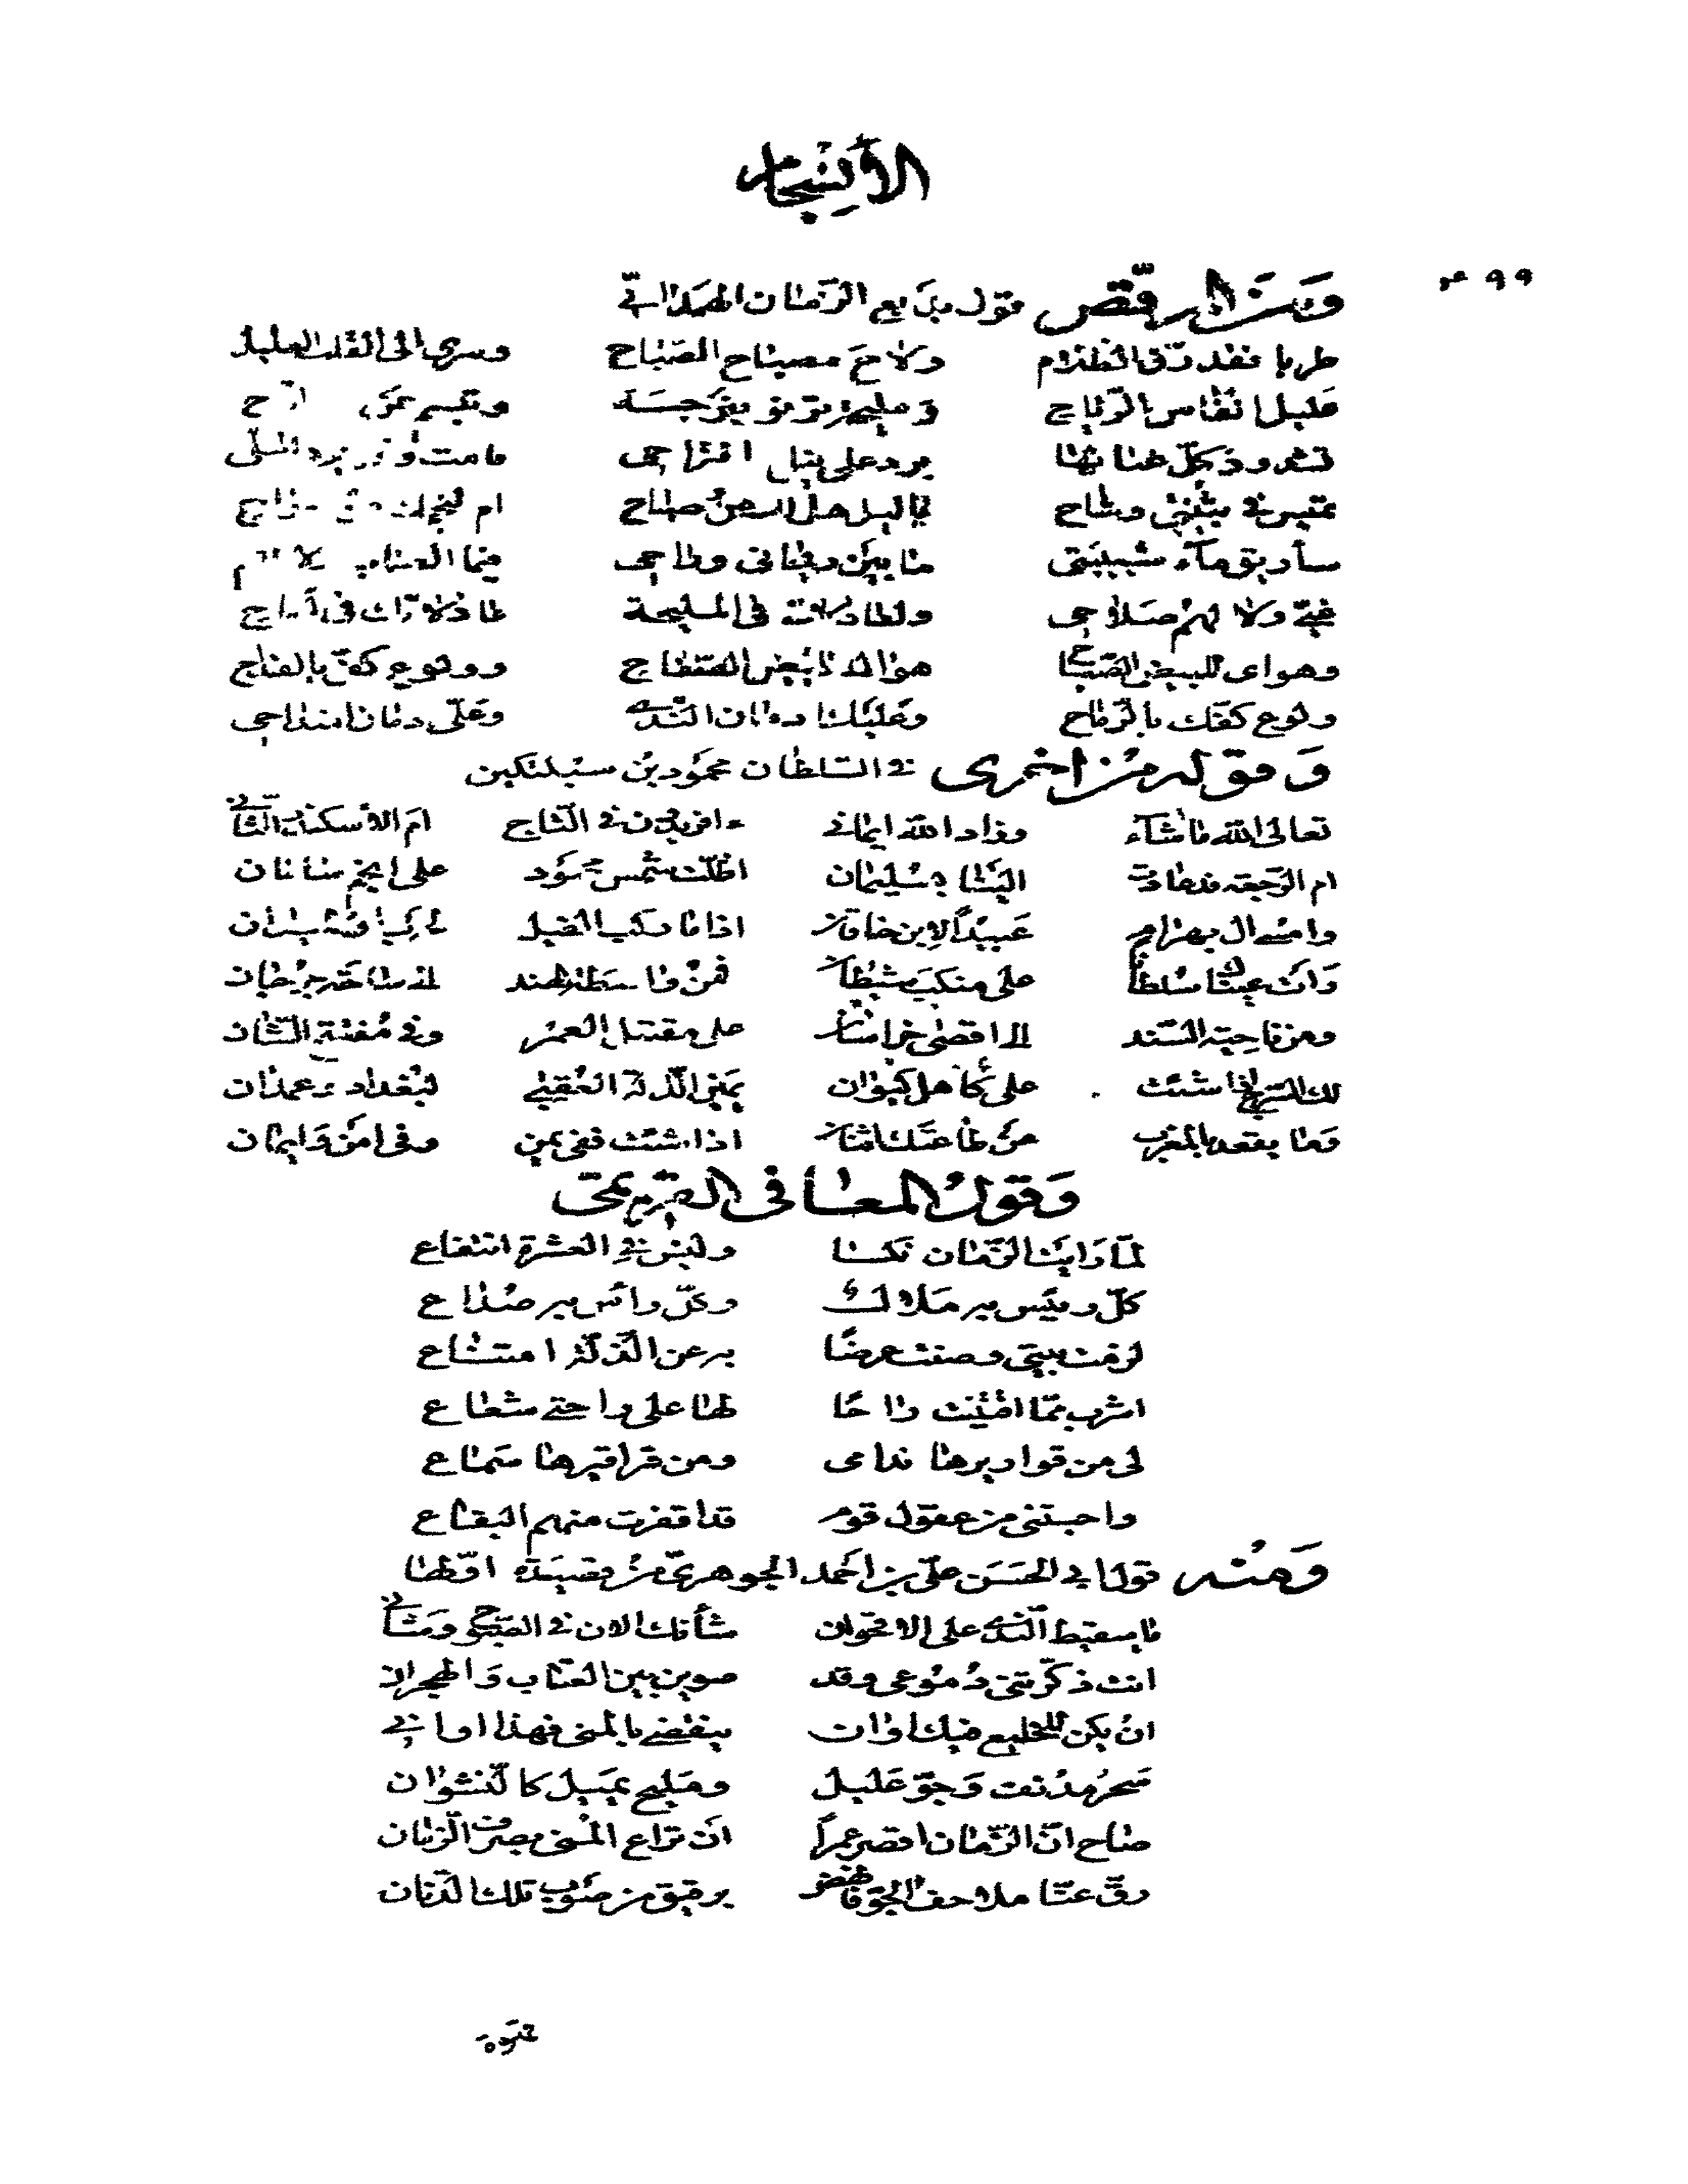 الأشجار
٩٩
ومن المرقص قول بديع الزمان الهمداني
طربا فقد رق الظلام ولاح مصباح الصباح وسرى الى القلب العليل
عليل انفاس الرياح ومليحة ترنو بنرجسة وتبسم عن اقاح
تشدو وكل غنائها برد على اقتراحي قامت وقد برد الحلى
تميس في ثنى وشاح يا ليل هل لك من صباح ام لنجمك من براح
سأريق ماء شبيبتي ما بين ريحاني وراحي فيما العتاب
غيي ولا لهم صلاحي ولطالما في المليحة
وهواي للبيض الصبا هواك للبيض الصفاح وولوع كفي بالقداح
ولوع كفك بالرماح وعليك ادمان الندى وعلي دمان امتداحي
وقوله من اخرى في السلطان محمود بن سبكتكين
تعالى الله ما شاء وزاد الله ايماني ءافريدون في التاج ام الأسكندر الثاني
ام الرجعة قد عادت الينا بسليمان اظلت شمس محمود على انجم سامان
وامسى ال بهرام عبيدًا لابن خاقان اذا ما ركب الفيل
رأت عيناك سلطانا على منكب شيطان فمن واسطة الهند الى ساحة جرجان
ومن ناحية السند الى اقصى خراسان على مقتبل العمر وفي مفتتح الشان
لك السرج اذا شئت على كاهل كيوان يمين الدولة العقبى لبغداد وغمدان
وما يقعد بالمغرب عن طاعتك اثنان اذا شئت ففي يمن وفي امن وايمان
وقول المعافى القزيمي
لما رايت الزمان نكسا وليس في العشرة انتفاع
كل رئيس به ملال وكل رأس به صداع
لزمت بيتي وصنت عرضًا به عن الذلة امتناع
اشرب مما اقتنيت راحًا لها على راحتي شعاع
لي من قواريرها ندامى ومن قراقيرها سماع
واجتني من عقول قوم قد اقفرت منهم البقاع
ومنه قول ابي الحسن علي بن احمد الجوهري من قصيدة اولها
يا سقيط الندى على الاقحوان شأنك الان في الصبوح وشاني
انت ذكرتني دموعي وقد صوبن بين العتاب والهجران
ان يكن للخليع فيك اوان ينقضي بالمنى فهذا اواني
سحر مدنف وجو عليل ومليح يميل كالنشوان
صاح ان الزمان اقصر عمرًا ان تراع المنى بصرف الزمان
رق عنا ملاحف الجو فانهض برقيق من صوب تلك الدنان